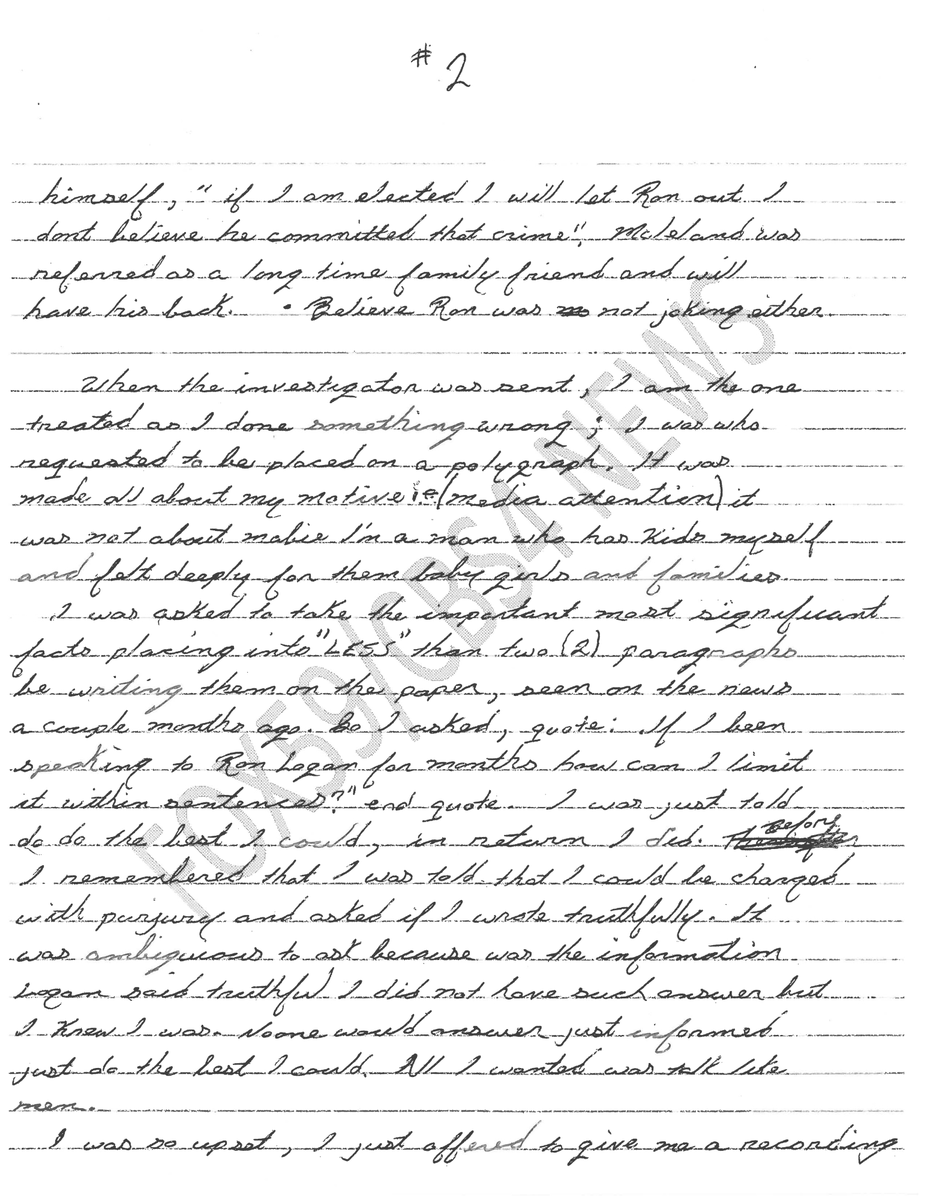 # 2
himself, " if I am elected I will let Ron out I
dont believe he committed that crime". Mcleland was
referred as a long time family friend and will
have his back. • Believe Ron was not joking either.
When the investigator was sent, I am the one
treated as I done something wrong; I was who
requested to be placed on a polygraph. It was
made all about my motive i.e (media attention) it
was not about mabie I'm a man who has kids myself
and felt deeply for them baby girls and families
I was asked to take the important most significant
facts placing into "LESS" than two (2) paragraphs
be writing them on the paper, seen on the news
a couple months ago. So I asked, quote: If I been
speaking to Ron Logan for months how can I limit
it within sentences?" end quote. I was just told
do do the best I could, in return I did. Before
I remembered that I was told that I could be charged
with purjury and asked if I wrote truthfully. It
was ambiguous to ask because was the information
Logan said truthful I did not have such answer but
I knew I was. Noone would answer just informed
just do the best I could. All I wanted was talk like
men.
I was so upset, I just offered to give me a recording
FOX59/CBS4 NEWS